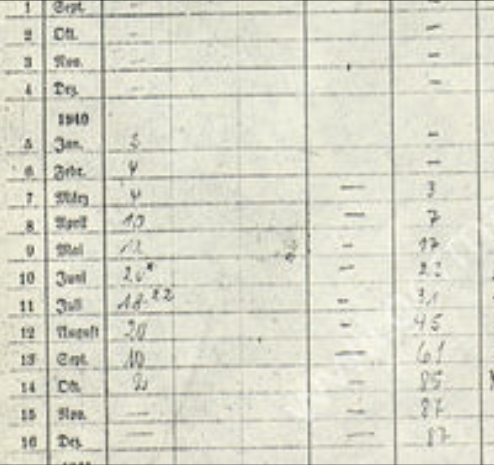 1 Sept. - -
2 Okt. - -
3 Nov. - -
4 Dez. - -
1940
5 Jan. 5 -
6 Febr. 4 -
7 März 4 - 3
8 April 10 - 7
9 Mai 12 - 17
10 Juni -
11 Juli 18 22 - 31
12 August 20 - 45
13 Sept. 10 - 61
14 Okt. - 85
15 Nov. - - 87
16 Dez. - - 87